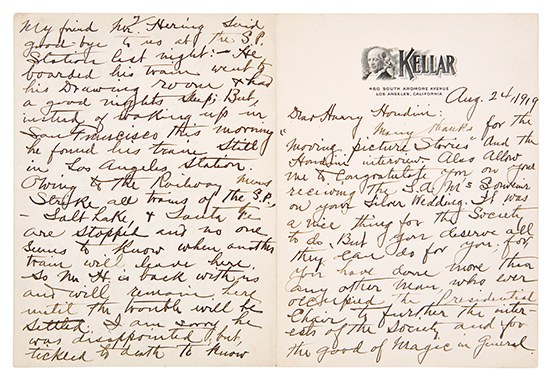 KELLAR
460 SOUTH ARDMORE AVENUE
LOS ANGELES, CALIFORNIA
Aug. 24, 1919
Dear Harry Houdini:
Many thanks for the
"Moving picture Stories" and the
Houdini interview. Also Allow
me to Congratulate you on your
receiving the S.A.M's Souvenir
on your Silver Wedding. It was
a nice thing for the Society
to do. But you deserve all
they can do for you for,
you have done more than
any other man, who ever
occupied the Presidential
Chair, to further the inter-
ests of the Society and for
the good of Magic in General.
My friend Mr. Hering said
good bye to us at the S.P.
Station last night:- He
boarded his train went to
his Drawing room & had
a good nights sleep: But,
instead of waking up in
San Francisco this morning
he found his train still
in Los Angeles Station.
Owing to the Railway mens
Strike all trains of the S.P.
- Salt Lake, & Santa Fe
are stopped and no one
seems to know when another
train will leave here.
So Mr. H. is back with us
and will remain here
until the trouble will be
settled. I am sorry he
was disappointed but,
tickled to death to know